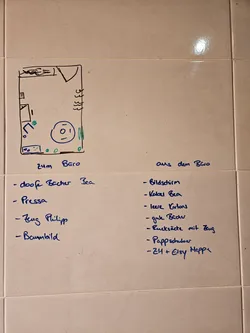 zum Büro
- doofe Becher Bea
- Pressa
- Zeug Philipp
- Baumbild
aus dem Büro
- Bildschirm
- Kabel Bea
- leere Kartons
- gute
- Rucksäcke mit Zeug
- Pappschuber
- ZH + Etoy Mappe